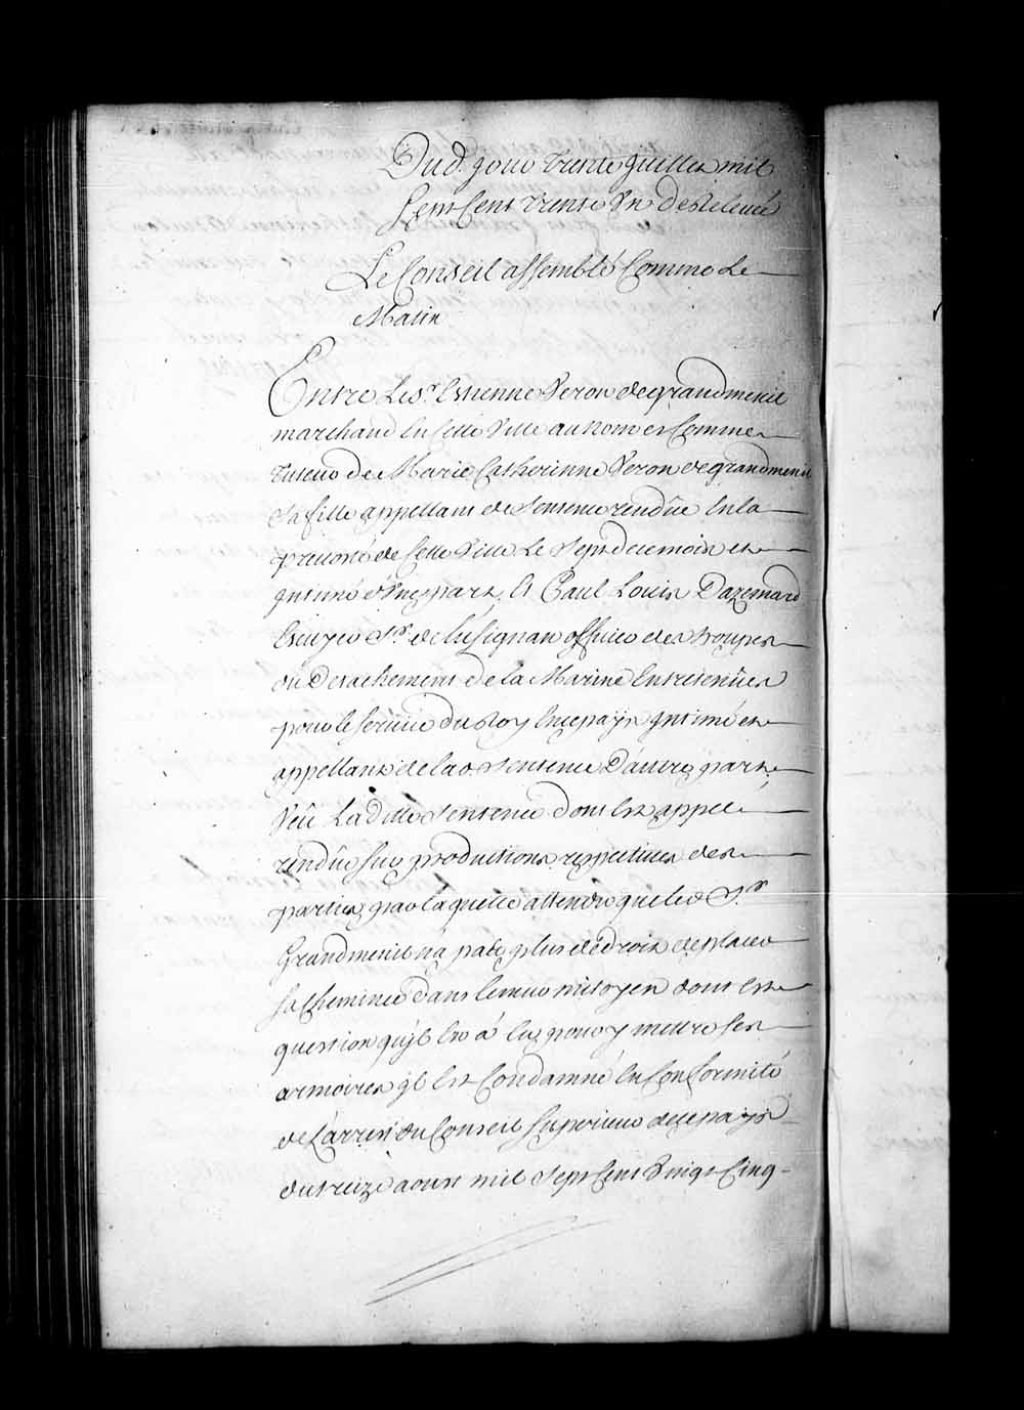 Dud. jour trente Juillet mil
Sept Cent trente Un de Relevé
Le Conseil assemblé Comme Le
Matin
Entre Le Sr. Estienne Veron de grandmenil
marchand En Cette Ville au Nom et Comme
Tuteur de Marie Catherinne Veron de grandmenil
Sa fille appellant de Sentence rendüe En la
prevosté de Cette Ville Le Sept de ce mois et
Intimé d'Une part, Et Paul Louis Dazemard
Escuyer Sr. de Lusignan officier des troupes
du Detachement de la Marine Entretenües
pour le service du Roy En ce pays Intimé et
appellant de lad. Sentence D'autre part
Veu La ditte Sentence dont Est appel
rendüe Sur productions respectives des
parties par laquelle attendu que led. Sr.
Grandmenil na pas plus de droit de placer
sa cheminée dans le mur mitoyen dont Est
question qu'il En a Eu pour y mettre ses
armoires il Est Condamné En Conformité
de L'arrest du Conseil Superieur de ce pays
du treize aoust mil Sept Cent Vingt Cinq